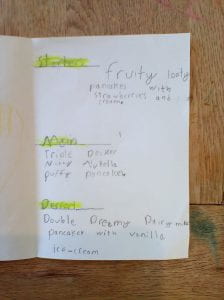 Starter
fruity looty
pancakes with
strawberries and
cream
Main
Triple Decker
Nutty Nutella
puffy pancakes
Dessert
Double Dreamy Dairy milk
pancakes with vanilla
ice-cream